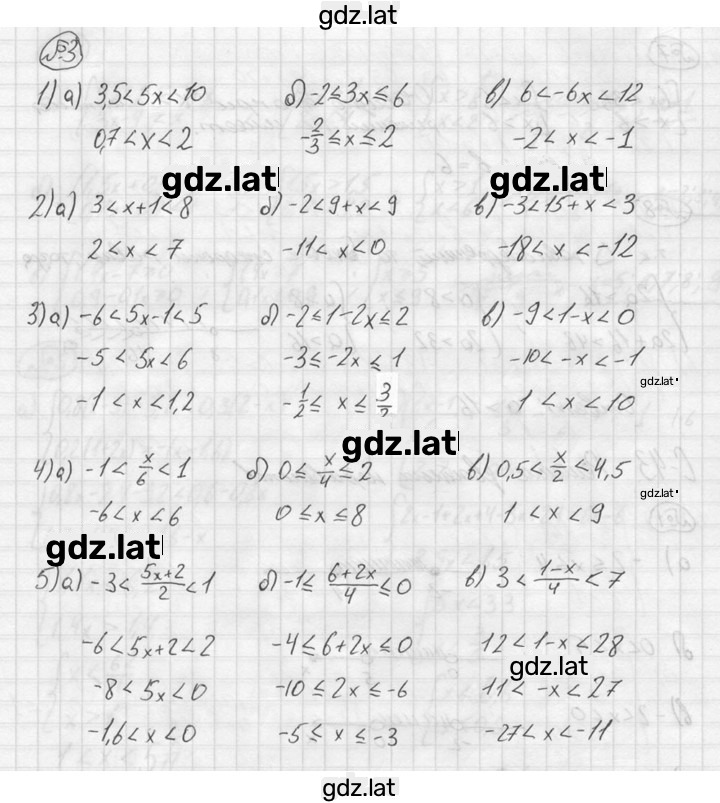 gdz.lat
№3
1) а) 3,5<5x<10 б) -2≤3x≤6 в) 6<-6x<12
0,7<x<2 -2/3≤x≤2 -2<x<-1
gdz.lat gdz.lat
2) а) 3<x+1<8 б) -2<9+x<9 в) -3<15+x<3
2<x<7 -11<x<0 -18<x<-12
3) а) -6<5x-1<5 б) -2≤1-2x≤2 в) -9<1-x<0
-5<5x<6 -3≤-2x≤1 -10<-x<-1
gdz.lat
-1<x<1,2 -1/2≤x≤3/2 1<x<10
gdz.lat
4) а) -1<x/6<1 б) 0≤x/4≤2 в) 0,5<x/2<4,5
gdz.lat
-6<x<6 0≤x≤8 1<x<9
gdz.lat
5) а) -3<(5x+2)/2<1 б) -1≤(6+2x)/4≤0 в) 3<(1-x)/4<7
-6<5x+2<2 -4≤6+2x≤0 12<1-x<28
gdz.lat
-8<5x<0 -10≤2x≤-6 11<-x<27
-1,6<x<0 -5≤x≤-3 -27<x<-11
gdz.lat